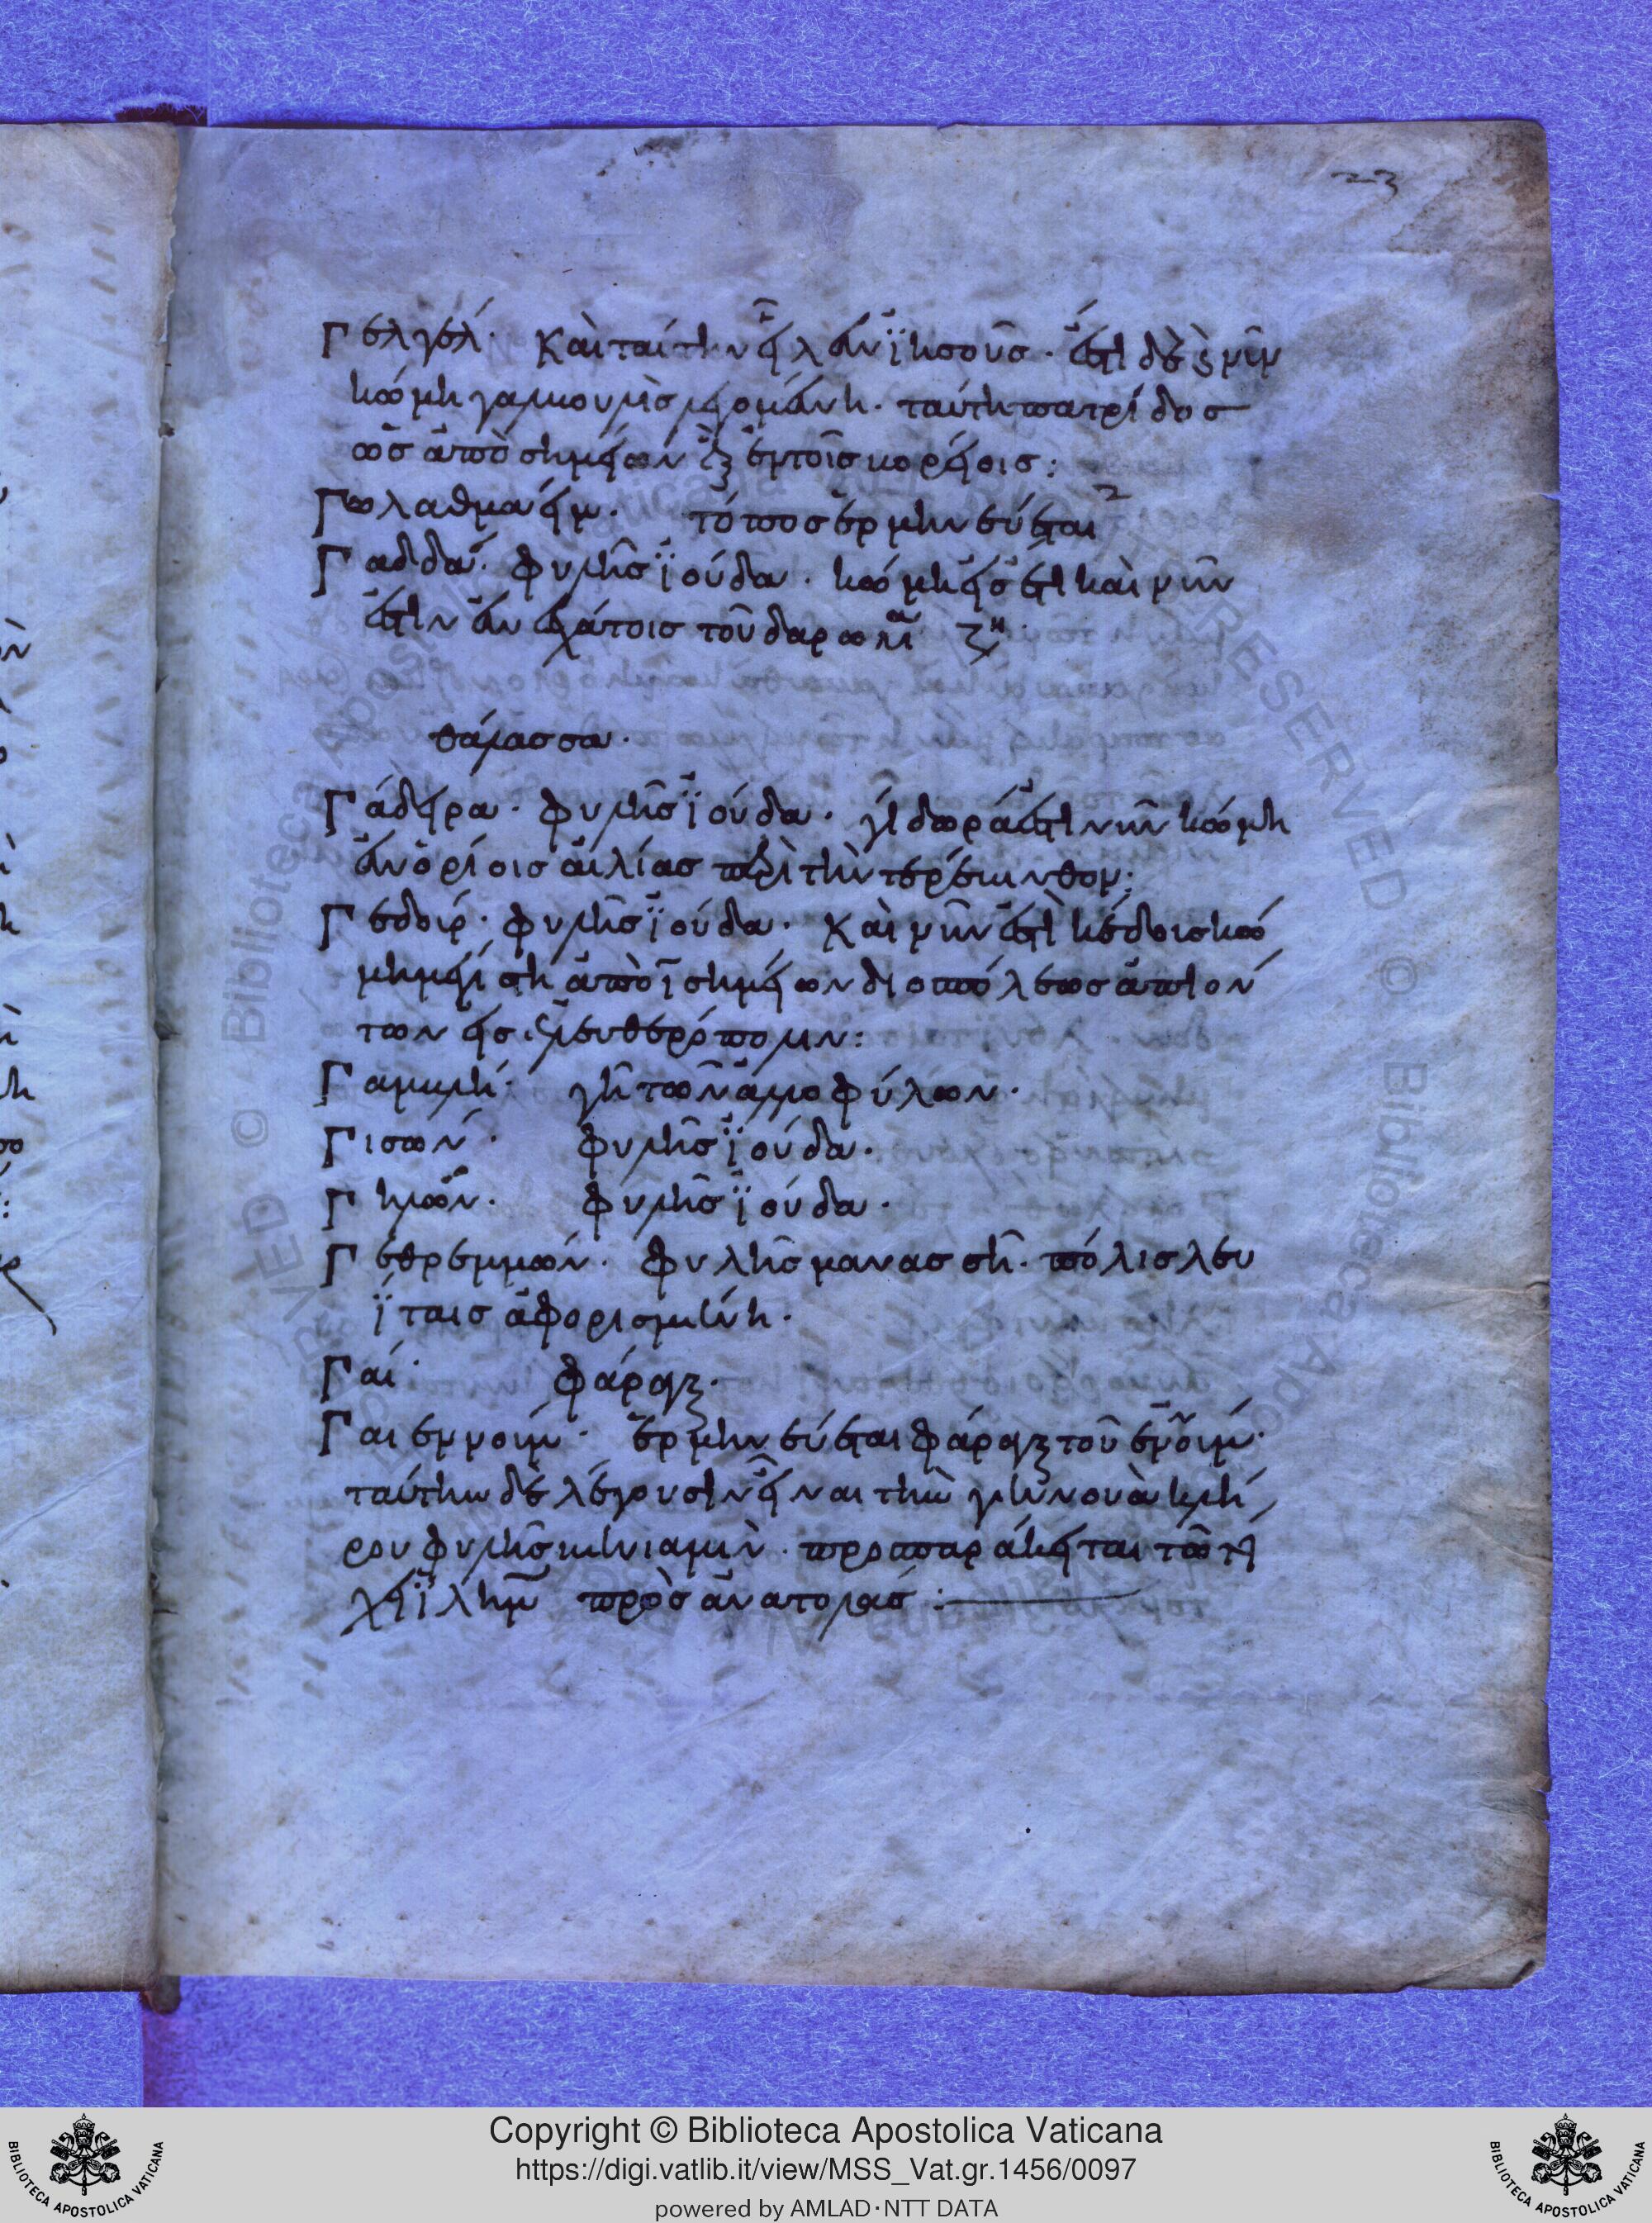 23
Γελγέλ· Καὶ ταύτην εἷλεν ἰησοῦς· ἔστι δὲ νῦν
κώμη γαλγουλὶς λεγομένη· ταύτη πατρίδος
ὡς ἀπὸ σημείων ἓξ ἐν τοῖς βορείοις:
Γωλαθμαείμ· τόπος ἑρμηνεύεται
Γαδδά· φυλῆς ἰούδα· κώμη εἰς ἔτι καὶ νῦν
ἐστὶν ἐν ἐσχάτοις τοῦ δαρωμᾶ
θάλασσα·
Γάδειρα· φυλῆς ἰούδα· γιδωρά ἐστι νῦν κώμη
ἐν ὁρίοις αἰλίας περὶ τὴν τερέβινθον:
Γεδούρ· φυλῆς ἰούδα· Καὶ νῦν ἐστὶ κέδους κώ
μη μεγίστη ἀπὸ ϊ σημείων διοπόλεως ἀπιόν
των εἰς ἐλευθερόπολιν:
Γαμβλή· γῆ τῶν ἀλλοφύλων·
Γισών· φυλῆς ἰούδα·
Γηλών· φυλῆς ἰούδα·
Γεθρεμμών· φυλῆς μανασσῆ· πόλις λευ
ίταις ἀφορισμένη·
Γαί· φάραγξ·
Γαι εννούμ· ἑρμηνεύεται φάραγξ τοῦ ἐννούμ·
ταύτην δὲ λέγουσιν εἶναι τὴν γέενναν κλή
ρου φυλῆς βενιαμίν· προπαράκειται τῷ τεί
χει ϊλημ πρὸς ἀνατολάς:
Copyright © Biblioteca Apostolica Vaticana
https://digi.vatlib.it/view/MSS_Vat.gr.1456/0097
powered by AMLAD·NTT DATA
BIBLIOTECA APOSTOLICA VATICANA
BIBLIOTECA APOSTOLICA VATICANA